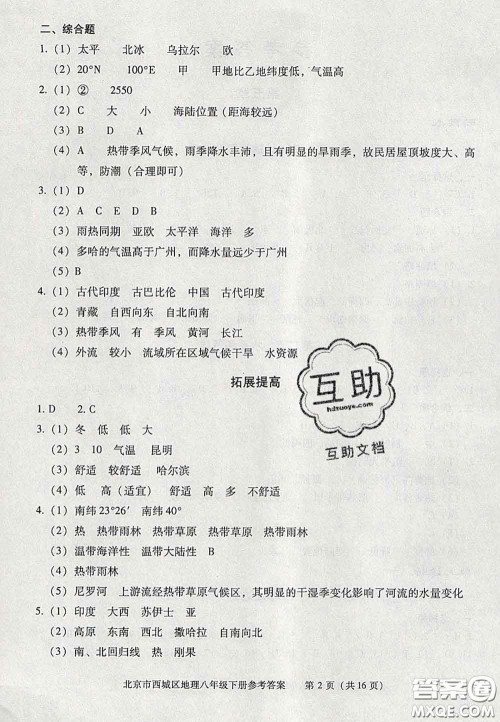 二、综合题
1. (1) 太平 北冰 乌拉尔 欧
(2) 20°N 100°E 甲 甲地比乙地纬度低，气温高
2. (1) ② 2550
(2) C 大 小 海陆位置（距海较远）
(3) B D A
(4) A 热带季风气候，雨季降水丰沛，且有明显的旱雨季，故民居屋顶坡度大、高
等，防潮（合理即可）
3. (1) D
(2) A C E D B
(3) 雨热同期 亚欧 太平洋 海洋 多
(4) 多哈的气温高于广州，而降水量远少于广州
(5) B
4. (1) 古代印度 古巴比伦 中国 古代印度
(2) 青藏 自西向东 自北向南
(3) 热带季风 有 季风 黄河 长江
(4) 外流 较小 流域所在区域气候干旱 水资源
拓展提高
1. D 2. C
3. (1) 冬 低 低 大
(2) 3 10 气温 昆明
(3) 舒适 较舒适 哈尔滨
(4) 低 高（适宜） 舒适 高 多 不舒适
4. (1) 南纬23°26′ 南纬90°
(2) 热 热带雨林 热带草原 热带草原 热带雨林
(3) 温带海洋性 温带大陆性 B
(4) 热带雨林
(5) 尼罗河 上游流经热带草原气候区，其明显的干湿季变化影响了河流的水量变化
5. (1) 印度 大西 苏伊士 亚
(2) 高原 东南 西北 撒哈拉 自南向北
(3) 南、北回归线 热 刚果
互助
hdzuoye.com
互助文档
北京市西城区地理八年级下册参考答案 第2页（共16页）
MXQE.COM